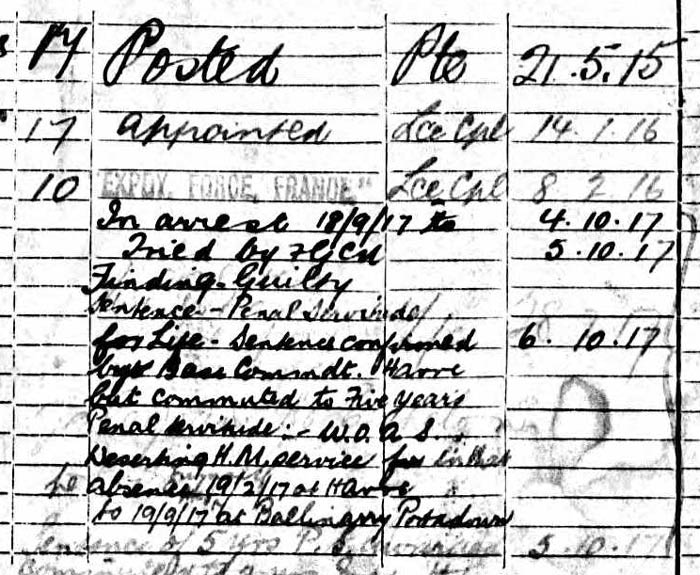 14 Posted Pte 21.5.15
17 Appointed Lce Cpl 14.1.16
10 EXPDY. FORCE, FRANCE" Lce Cpl 8 2 16
In arrest 18/9/17 to 4.10.17
Tried by FGCM 5.10.17
Finding - Guilty
Sentence - Penal Servitude
for Life - Sentence confirmed 6. 10.17
by Base Commdt. Havre
but commuted to Five years
Penal Servitude :- W.O.A.S.
Deserting H.M. service in that
absence 19/2/17 at Havre
to 19/9/17 at Portadown
Sentence of 5 yrs P.S. 5.10.17